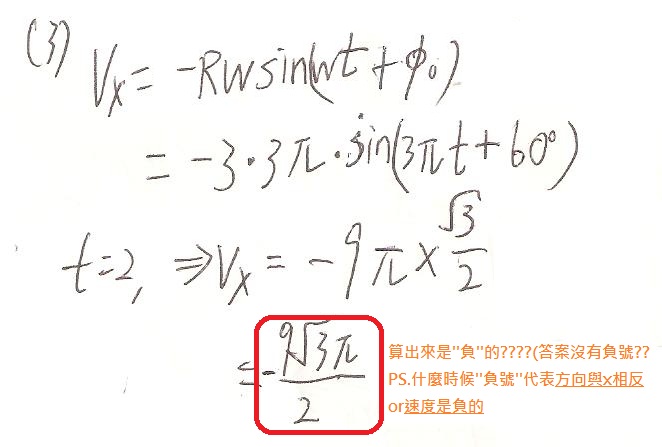 (3) Vx = -RWsin(wt+φ₀)
= -3·3π·sin(3πt+60°)
t=2, ⇒Vx = -9π×√3/2
= -9√3π/2
算出來是"負"的????(答案沒有負號??
PS.什麼時候"負號"代表方向與x相反
or速度是負的